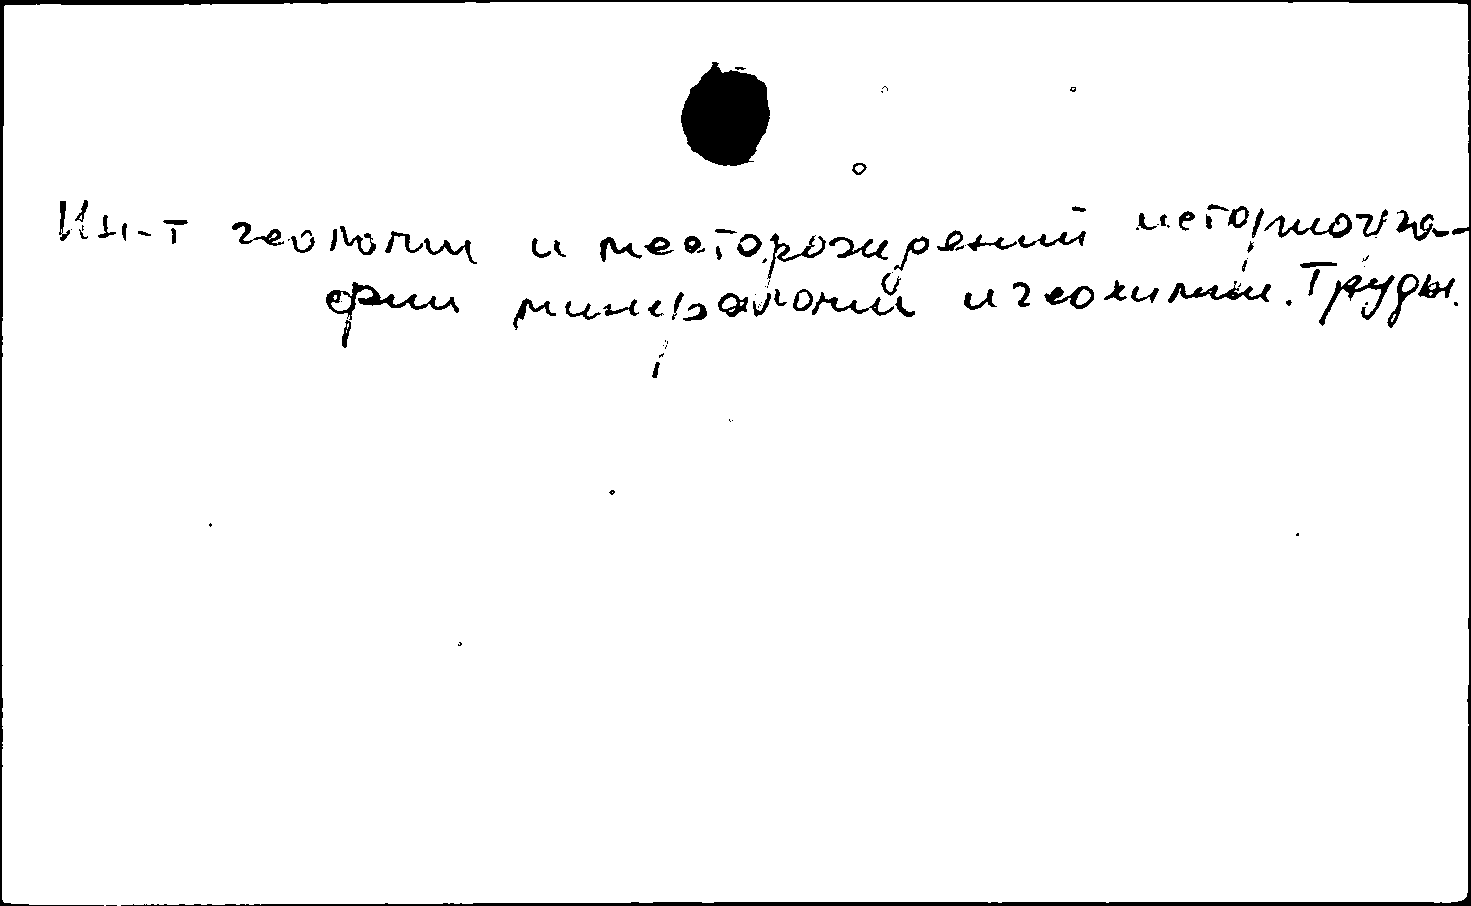 Ин-т геологии и месторождений историогра-
фии минералогии и геохимии. Труды.